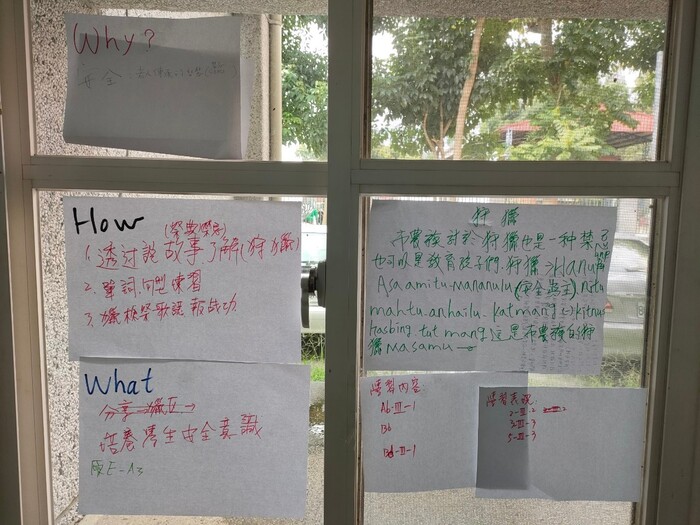 Why?
安全
How
(祭典禁忌)
1. 透过說故事了解(狩獵)
2. 單詞.句型練習
3. 獵槍祭歌謠報战功.
What
分享 獵區
培養學生安全意識
原E-A3
狩獵
布農族對於狩獵也是一種禁忌
也可以是教育孩子們.狩獵
Asa amitu-mananulu (安全為主) nitu
mahtu-anhailu-katmang
hasbing tut mang 這是布農族的狩
獵 masamu
學習內容:
Ab-Ⅲ-1
Bb
Bd-Ⅱ-1
學習表現:
2-Ⅲ-2
3-Ⅲ-3
5-Ⅲ-3